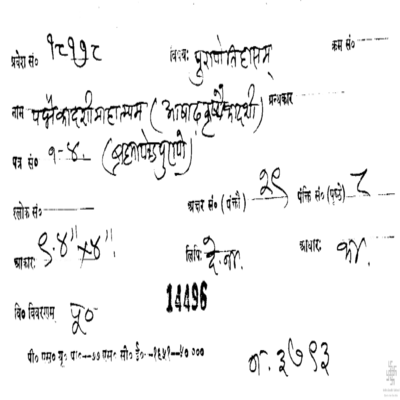 प्रवेश सं० १८११८ विषयः पुराणेतिहासम् क्रम सं०
नाम पद्मैकादशीमाहात्म्यम् (आषाढकृष्णैकादशी) ग्रन्थकार
पत्र सं० १-४ (ब्रह्माण्डपुराणे)
श्लोक सं० अक्षर सं० (पंक्तौ) २९ पंक्ति सं० (पृष्ठे) ८
आकारः ९.४"×४" लिपिः दे.ना. आधारः का.
वि० विवरणम् पू० 14496
पी० एस० यू० पी०--७७ एस० सी० ई०--१९५१--५० ०००